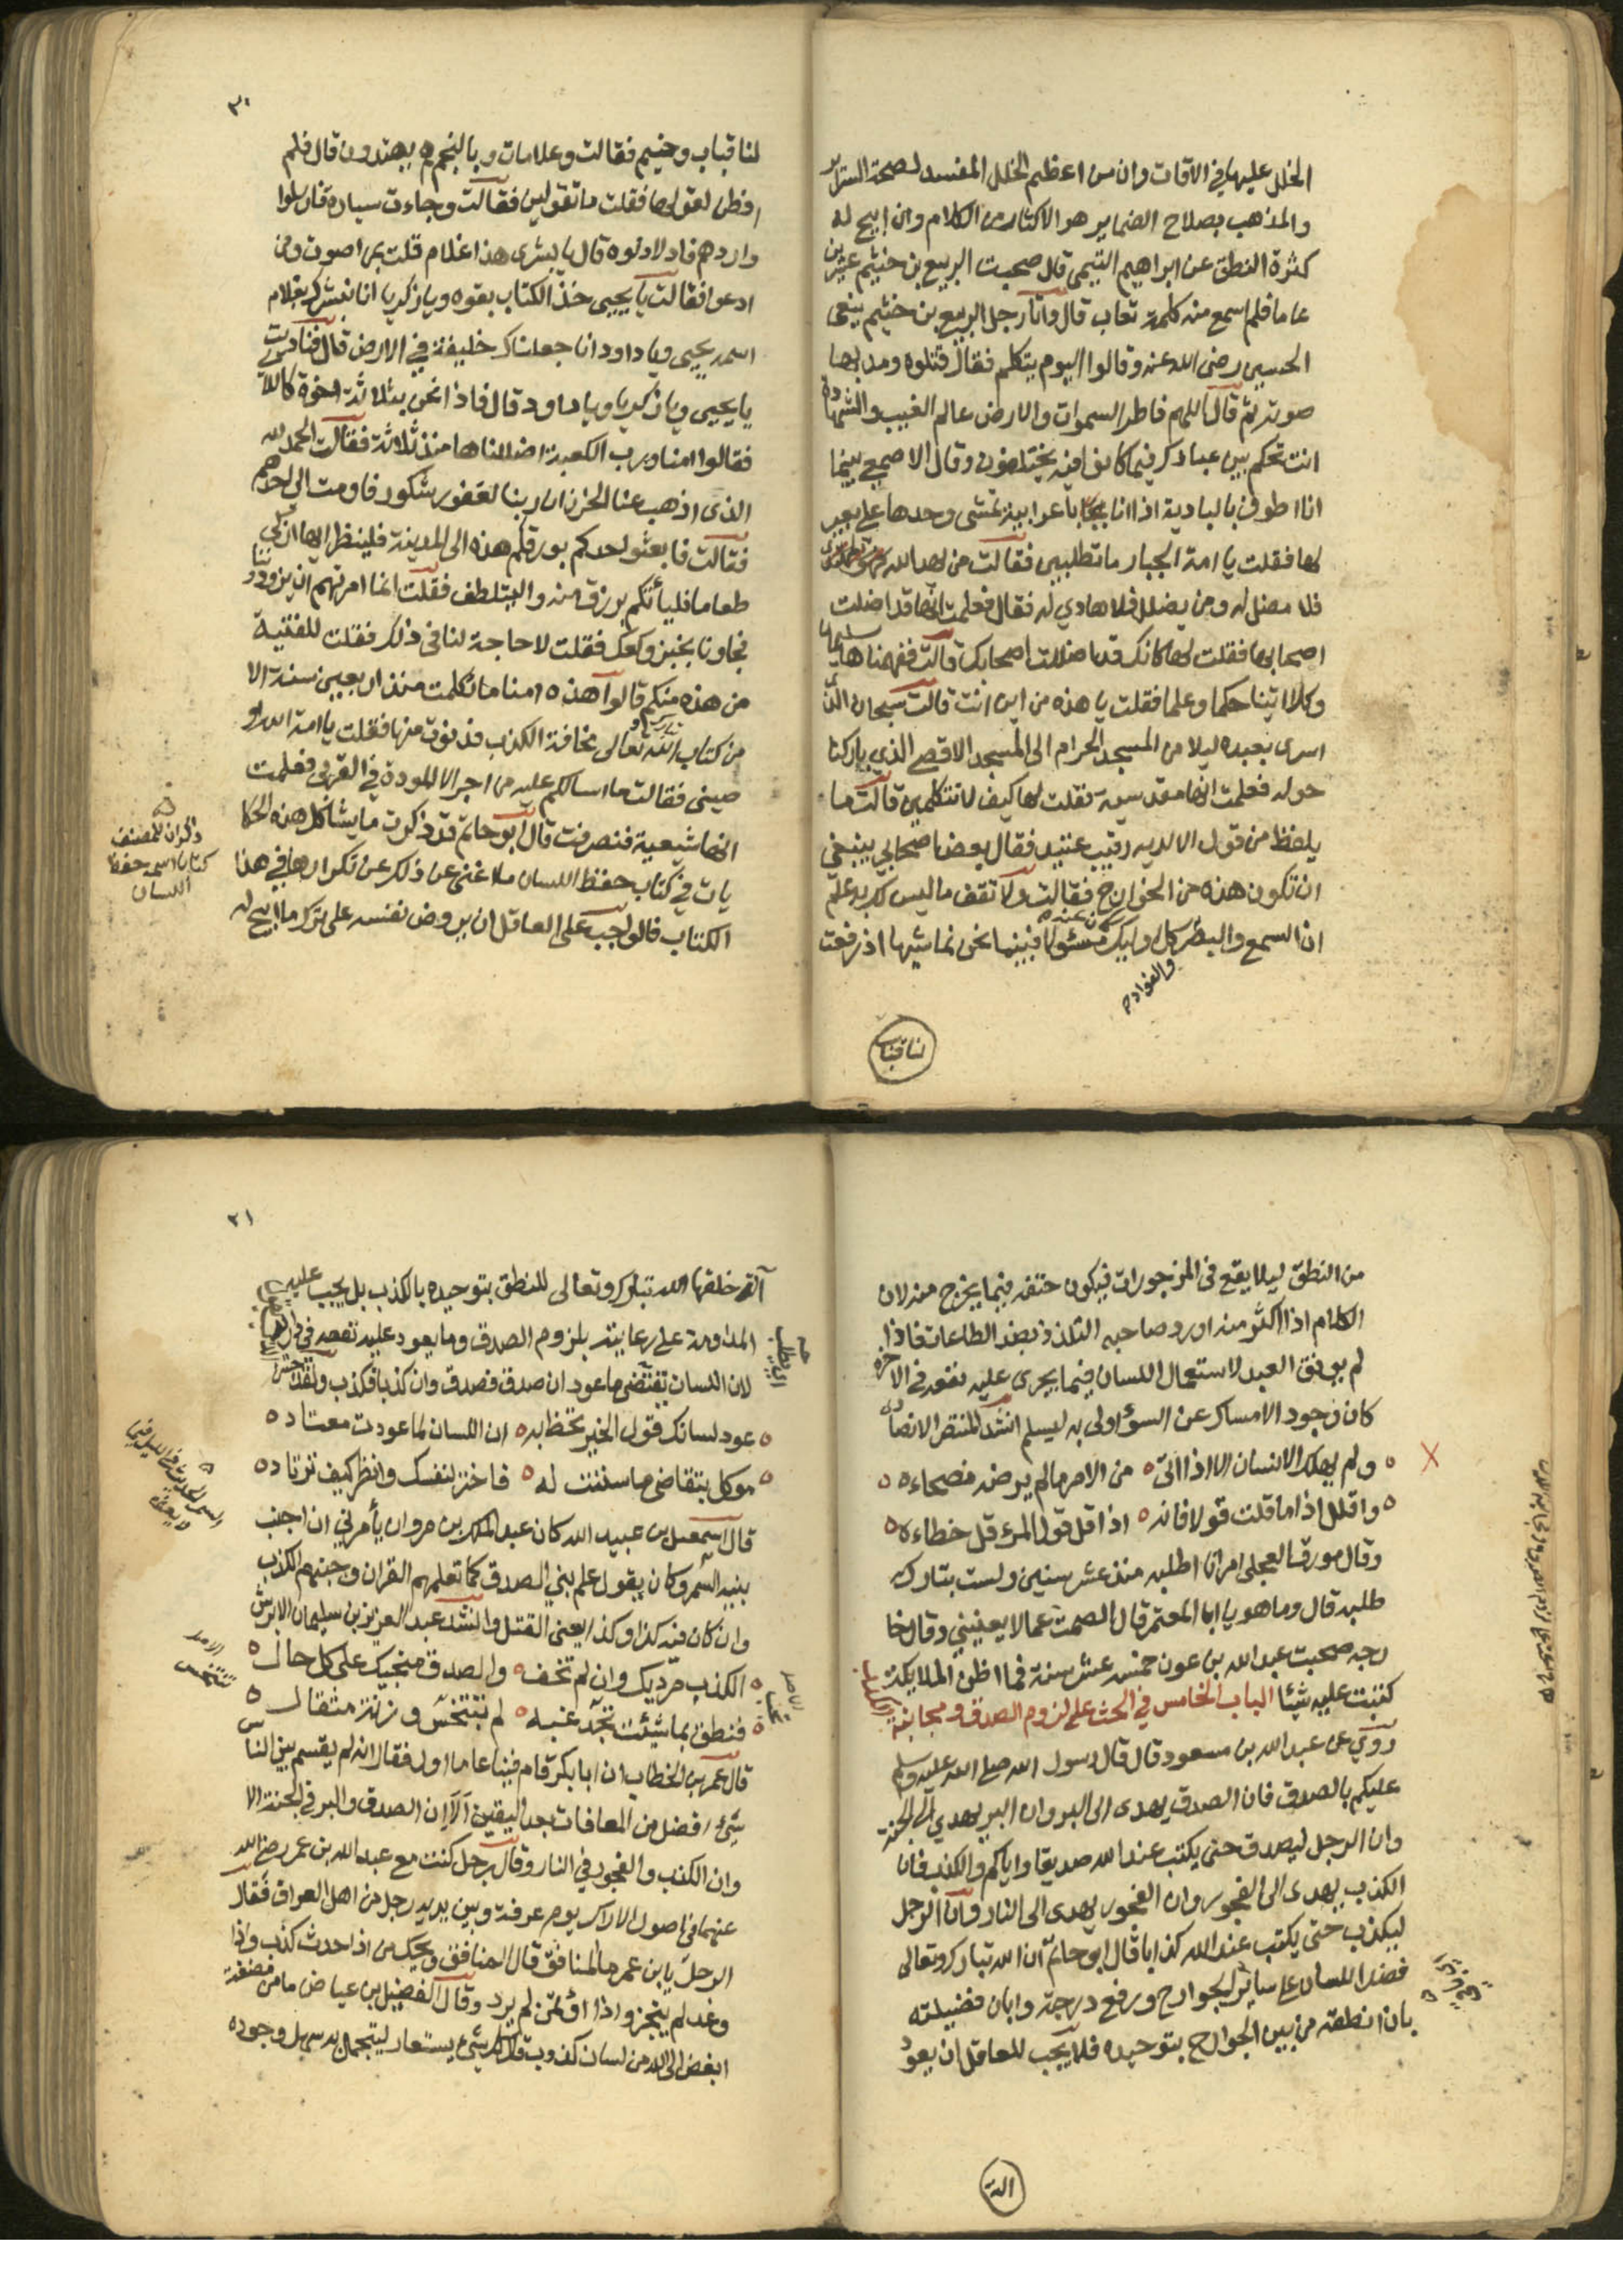 الخلل عليها في الاقات وان من اعظم الخلل المفسد لصحة السراير
والمذهب بصلاح الضماير هو الاكثار من الكلام وان ابيح له
كثرة النطق عن ابراهيم التيمى قال صحبت الربيع بن خيثم عشرين
عاما فلم اسمع منه كلمة تعاب قال واتا رجل الربيع بن خيثم ينعى
الحسين رضى الله عنه وقالوا اليوم يتكلم فقال قتلوه ومد بها
صوته ثم قال اللهم فاطر السموات والارض عالم الغيب والشهادة
انت تحكم بين عبادك فيما كانوا فيه يختلفون وقال الاصمعي بينما
انا اطوف بالبادية اذا انا باعرابية تمشى وحدها على بعير
لها فقلت يا امة الجبار ما تطلبين فقالت من يهد الله
فلا مضل له ومن يضلل فلا هادي له فقال فعلمت انها قد اضلت
اصحابها فقلت لها كانك قد اضللت اصحابك قالت ففهمناها سليمان
وكلا اتينا حكما وعلما فقلت يا هذه من اين انت قالت سبحان الذى
اسرى بعبده ليلا من المسجد الحرام الى المسجد الاقصى الذي باركنا
حوله فعلمت انها مقدسية فقلت لها كيف لا تتكلمين قالت ما
يلفظ من قول الا لديه رقيب عتيد فقال بعض اصحابي ينبغي
ان تكون هذه من الخوارج فقالت ولا تقف ما ليس لك به علم
ان السمع والبصر كل اوليك كان عنه مسئولا فبينما نحن نماشيها اذ رفعت
والفواد صح
لنا قباب
٣٠
لنا قباب وخيم فقالت وعلامات وبالنجم هم يهتدون قال فلم
افطن لقولها فقلت ما تقولين فقالت وجاءت سيارة فارسلوا
واردهم فادلا دلوه قال يا بشرى هذا غلام قلت بمن اصوت ومن
ادعوا فقالت يا يحيى خذ الكتاب بقوه ويا زكريا انا نبشرك بغلام
اسمه يحيى ويا داود انا جعلناك خليفة في الارض قال فناديت
يا يحيى ويا زكريا ويا داود قال فاذا نحن بثلاثة اخوة كاللآ
فقالوا امنا ورب الكعبة اضللناها منذ ثلاثة فقالت الحمد لله
الذى اذهب عنا الحزن ان ربنا لغفور شكور فاومت الى احدهم
فقالت فابعثو احدكم بورقكم هذه الى المدينة فلينظر ايها ازكى
طعاما فليأتكم برزق منه وليتلطف فقلت انما امرتهم ان يزودونا
فجاونا بخبز وكعك فقلت لا حاجة لنا فى ذلك فقلت للفتية
من هذه منكم قالوا هذه امنا ما تكلمت منذ اربعين سنة الا
من كتاب الله تعالى مخافة الكذب فدنوت منها فقلت يا امة الله او
صينى فقالت ما اسالكم عليه من اجر الا المودة في القربى فعلمت
انها شيعية فنصرفت قال ابو حاتم قد ذكرت ما يشاكل هذه الحكا
يات في كتاب حفظ اللسان ملا غنى عن ذلك عن تكرارها في هذا
الكتاب فالواجب على العاقل ان يروض نفسه على ترك ما ابيح له
ذكر ان للمصنف
كتاب اسمه حفظ
اللسان
من النطق ليلا يقع في المزجورات فيكون حتفه فيما يخرج منه لان
الكلام اذا اكثر منه اورد صاحبه التلذذ بضد الطاعات فاذا
لم يوفق العبد لاستعمال اللسان فيما يجرى عليه نفعه في الاخرة
كان وجود الامساك عن السؤ اولى به ليسلم انشد المنتصر الانصارى
ه ولم يهلك الانسان الا اذا اتى ه من الامر ما لم يرضه نصحاءه ه
ه واقلل اذا ما قلت قولا فانه ه اذا قل قول المرء قل خطاءه ه
وقال مورق العجلى امر انا اطلبه منذ عشر سنين ولست بتارك
طلبه قال وما هو يا ابا المعتمر قال الصمت عما لا يعنيني وقال خا
رجه صحبت عبد الله بن عون خمس عشر سنة فما اظن الملايكة
كتبت عليه شيئا الباب الخامس في الحث على لزوم الصدق ومجانبة
روي عن عبد الله بن مسعود قال قال رسول الله صلى الله عليه وسلم
عليكم بالصدق فان الصدق يهدى الى البر وان البر يهدي الى الجنة
وان الرجل ليصدق حتى يكتب عند الله صديقا واياكم والكذب فان
الكذب يهدى الى الفجور وان الفجور يهدى الى النار وان الرجل
ليكذب حتى يكتب عند الله كذابا قال ابو حاتم ان الله تبارك وتعالى
فضل اللسان على ساير الجوارح ورفع درجته وابان فضيلته
بان انطقه من بين الجوارح بتوحيده فلا يجب للعاقل ان يعود
الة
٣١
آلة خلقها الله تبارك وتعالى للنطق بتوحيده بالكذب بل يجب عليه
المداومة على رعايته بلزوم الصدق وما يعود عليه نفعه في داريه
لان اللسان تقتضى ما عود ان صدق فصدق وان كذبا فكذب ولقد احسن
ه عود لسانك قول الخير تحظ به ه ان اللسان لما عودت معتاد ه
ه موكل بتقاضى ما سننت له ه فاختر لنفسك وانظر كيف ترتاد ه
قال اسمعيل بن عبيد الله كان عبد الملك بن مروان يأمرني ان اجنب
بنيه السمر وكان يقول علم بني الصدق كما تعلمهم القران وجنبهم الكذب
وان كان فيه كذا وكذا يعنى القتل وانشد عبد العزيز بن سليمان الابرش
ه الكذب مرديك وان لم تخف ه والصدق منجيك على كل حال ه
ه فنطق بما شيئت تجد غبه ه لم تبتخس وزنة مثقال ه
قال عمر بن الخطاب ان ابا بكر قام فينا عاما اول فقال انه لم يقسم بين الناس
شئ افضل من المعافات بعد اليقين الا ان الصدق والبر في الجنة الا
وان الكذب والفجور في النار وقال رجل كنت مع عبد الله بن عمر رضى الله
عنهما في اصول الاراك يوم عرفة وبين يديه رجل من اهل العراق فقال
الرجل يا بن عمر ما المنافق قال المنافق ويحك من اذا حدث كذب واذا
وعد لم ينجز واذا اؤتمن لم يرد وقال الفضيل بن عياض ما من مضغة
ابغض الى الله من لسان كذوب قال كل شئ يستعار ليتجمل به سهل وجوده